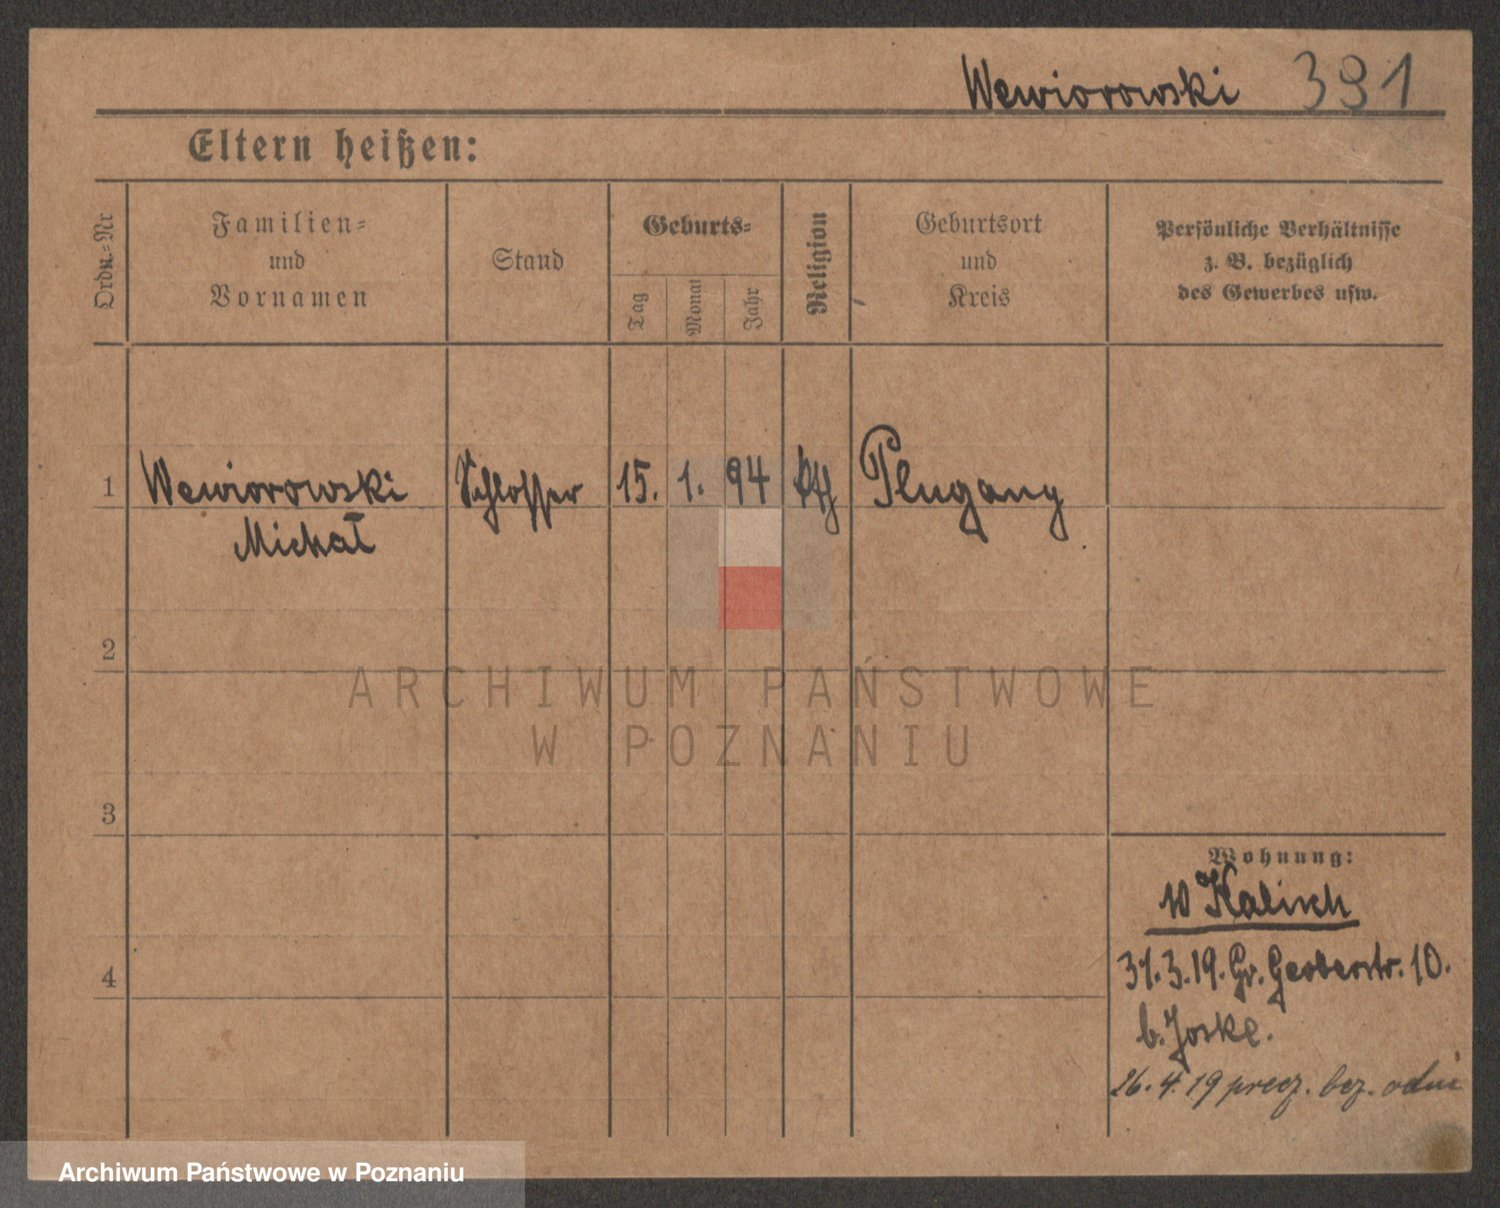 Wewiorowski 391
Eltern heißen:
Ordn.-Nr
Familien-
und
Vornamen
Stand
Geburts-
Tag
Monat
Jahr
Religion
Geburtsort
und
Kreis
Persönliche Verhältnisse
z. B. bezüglich
des Gewerbes usw.
1 Wewiorowski Schlosser 15. 1. 94 kth Plugany
Michał
2
ARCHIWUM PAŃSTWOWE
W POZNANIU
3
Wohnung:
Kalisch
4
31.3.19. Gr. Gerberstr. 10.
b. Joske.
26.4.19 bez.
Archiwum Państwowe w Poznaniu